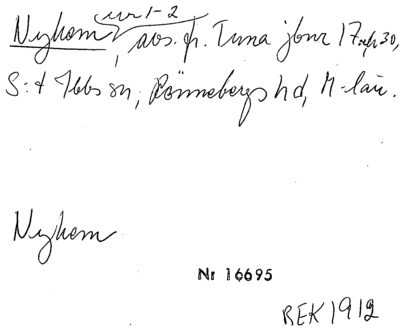 nr 1-2
Nyhem, avs. fr. Tuna jbnr 17 och 30,
S:t Ibbs sn, Rönnebergs hd, M-län.
Nyhem
Nr 16695
REK 1912